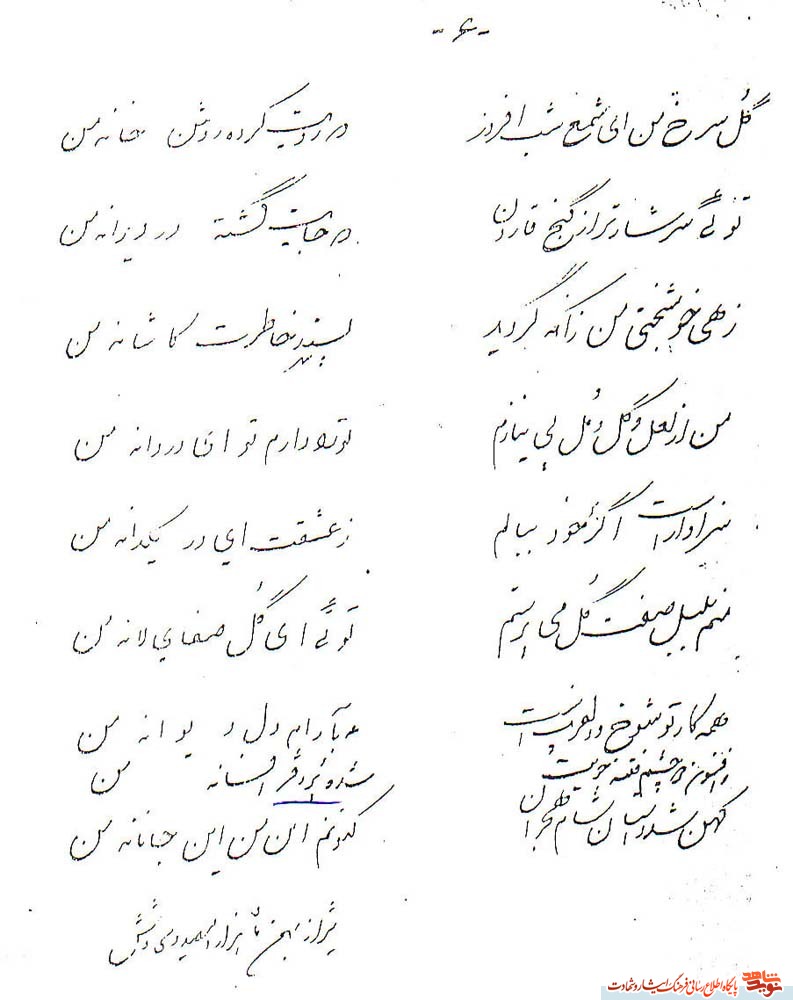 -۶-
گل سرخ من ای شمع شب افروز
رویت کرده روشن خانه من
توئی سرشارتر از گنج قارون
جایت گشته در ویرانه من
زهی خوشبختی من زآنکه گردید
پسند خاطرت کاشانه من
من از لعل و گل و مل بی نیازم
تو را دارم تو ای دردانه من
سزاوار است اگر بر خود ببالم
ز عشقت ای در یکدانه من
منم بلبل صفت گل می پرستم
توئی ای گل صفای لانه من
همه کار تو شوخ و دلفریب است
دل دیوانه من
چشم فتنه جویت
شده پر دفتر افسانه من
کهن شد داستان شام هجران
من این جانانه من
شیراز بهمن ماه هزار و سیصد و سی و شش
نوید شاهد
پایگاه اطلاع رسانی فرهنگ ایثار و شهادت